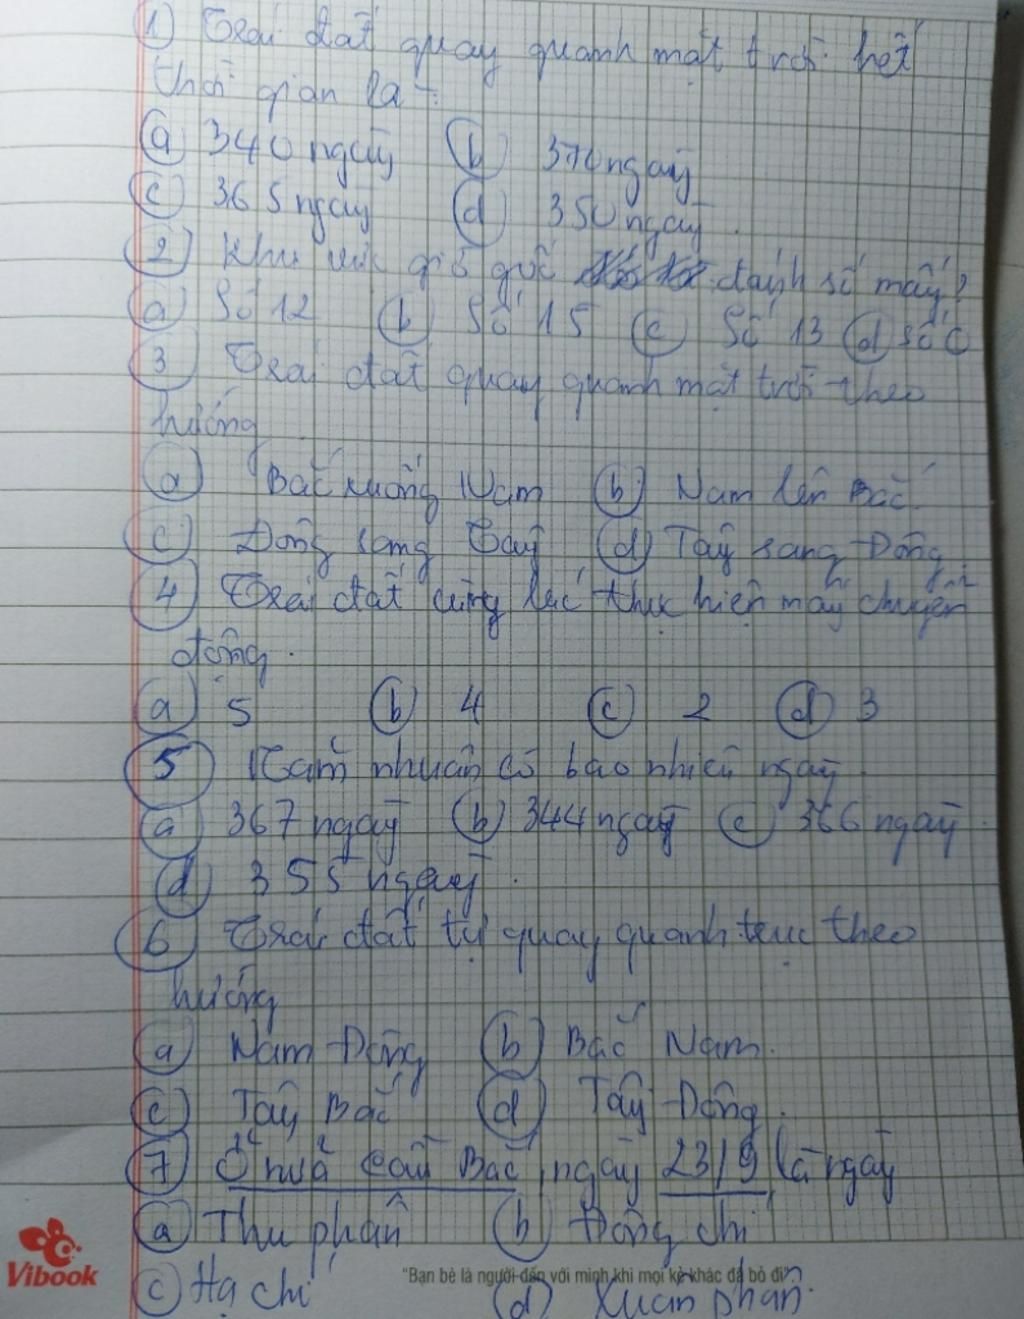 1) Trái đất quay quanh mặt trời hết
thời gian là:
a 340 ngày b 370 ngày
c 365 ngày d 350 ngày.
2) Khu vực giờ gốc đánh số mấy?
a Số 12 b Số 15 c Số 13 d Số 0
3 Trái đất quay quanh mặt trời theo
hướng
a Bắc xuống Nam b Nam lên Bắc
c Đông sang Tây d Tây sang Đông
4 Trái đất cùng lúc thực hiện mấy chuyển
động.
a 5 b 4 c 2 d 3
5 Năm nhuận có bao nhiêu ngày
a 367 ngày b 344 ngày c 366 ngày
d 355 ngày.
6 Trái đất tự quay quanh trục theo
hướng
a Nam Đông b Bắc Nam.
c Tây Bắc d Tây Đông.
7 Ở nửa cầu Bắc, ngày 23/9 là ngày
a Thu phân b Đông chí
c Hạ chí d Xuân phân.
Vibook
"Bạn bè là người đến với mình khi mọi kẻ khác đã bỏ đi".